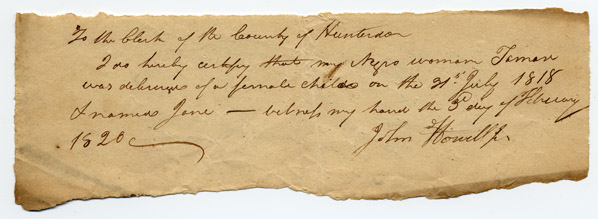 To the Clerk of the County of Hunterdon
I do hereby certify that my Negro woman Tamar
was delivered of a female child on the 31st July 1818
& named Jane — witness my hand the 3d day of February
1820
John Howell Jr